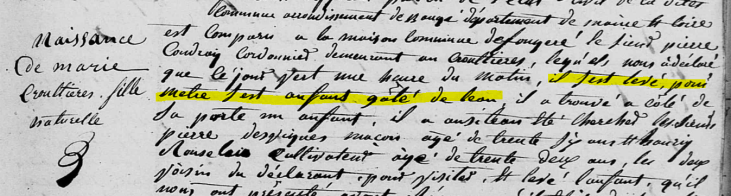 Naissance
de marie
Croultières, fille
naturelle
commune arrondissement de Baugé département de maine et Loire
est comparu a la maison Commune de fougeré le sieur pierre
Coudray Cordonnier demeurant au Croultières, lequel nous a déclaré
que le jour d'est une heure du matin, il s'est levé, pour
metre s'est anfant gâté de leau, il a trouvé a côté de
Sa porte un anfant, il a ausitous été chercher les sieurs
pierre despignes macon agé de trente six ans et
Rousselais Cultivateur agé de trente deux ans, les deux
voisins du déclarant, pour visiter et levé l'anfant, qu'il
nous ont présenté